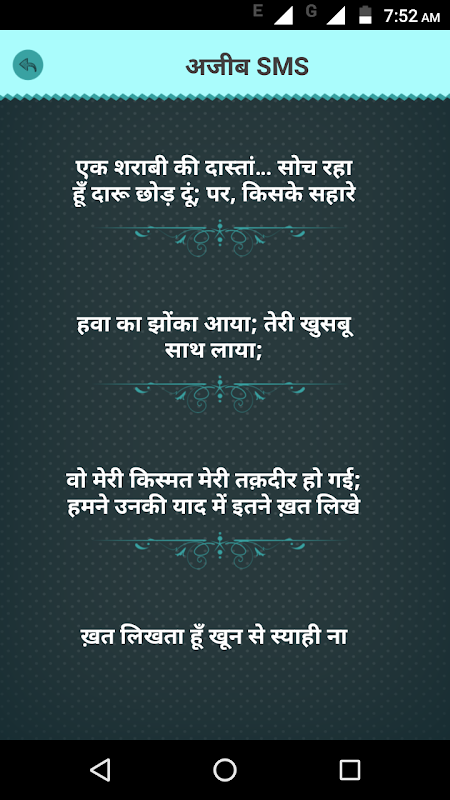 E G 7:52 AM
अजीब SMS
एक शराबी की दास्तां... सोच रहा
हूँ दारू छोड़ दूं; पर, किसके सहारे
हवा का झोंका आया; तेरी खुसबू
साथ लाया;
वो मेरी किस्मत मेरी तक़दीर हो गई;
हमने उनकी याद में इतने ख़त लिखे
ख़त लिखता हूँ खून से स्याही ना